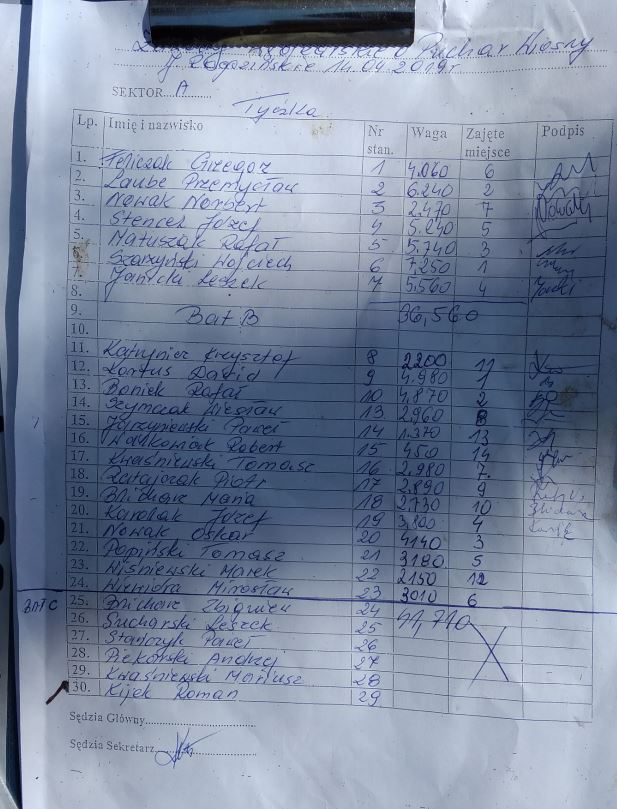 Puchar Wiosny
14.04.2019r
SEKTOR A
Tyczka
Lp. Imię i nazwisko Nr stan. Waga Zajęte miejsce Podpis
1. Felczak Grzegorz 1 4.060 6
2. Laube Przemysław 2 6.240 2
3. Nowak Norbert 3 2.470 7 Nowak
4. Stencel Józef 4 5.240 5
5. Matuszak Rafał 5 5.740 3
6. Szarzyński Wojciech 6 7.250 1
7. Janicki Leszek 7 5.560 4
8.
9. Bat B 36,560
10.
11. Krzysztof 8 2200 11
12. Kortus Dawid 9 4.980 1
13. Boniek Rafał 10 4.870 2
14. Szymczak Wiesław 13 2.960 8
15. Paweł 14 1.370 13
16. Walkowiak Robert 15 450 14
17. Kwaśniewski Tomasz 16 2.980 7
18. Ratajczak Piotr 17 2.890 9
19. Blicharz Maria 18 2.730 10
20. Karolak Józef 19 3.800 4
21. Nowak Oskar 20 4140 3
22. Popiński Tomasz 21 3180 5
23. Wiśniewski Marek 22 2150 12
24. Mirosław 23 3010 6
BAT C 25. Blicharz Zbigniew 24 41,710
26. Sucharski Leszek 25
27. Stańczyk Paweł 26
28. Piekarski Andrzej 27
29. Kwaśniewski Mariusz 28
30. Kijek Roman 29
Sędzia Główny
Sędzia Sekretarz